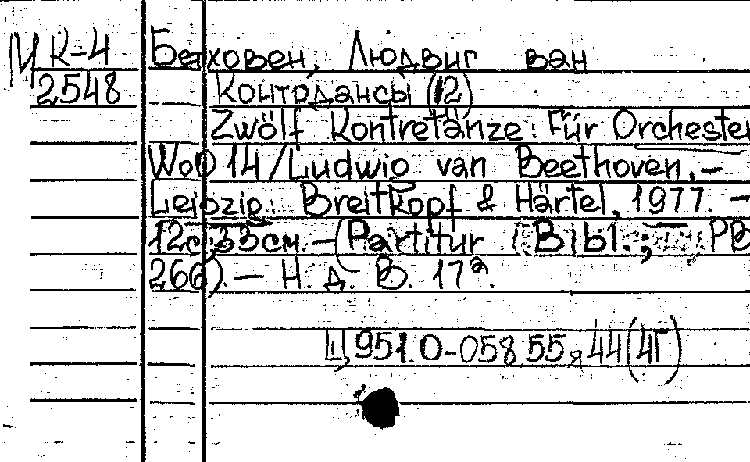 М К-4 Бетховен, Людвиг ван
2548 Контрдансы (12)
Zwölf Kontretänze: Für Orchester
WoO 14/Ludwig van Beethoven.—
Leipzig: Breitkopf & Härtel, 1977. —
12с; 33см.—(Partitur Bibl.; PB
266).— Н. д. В. 17а.
Ц951.0-058.55я44(4Г)